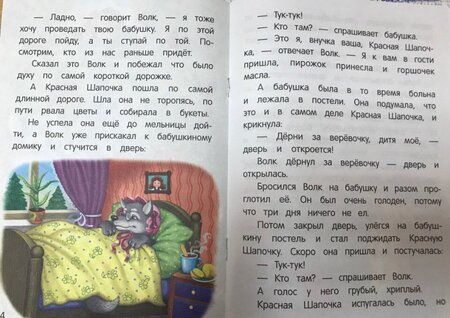 — Ладно, — говорит Волк, — я тоже
хочу проведать твою бабушку. Я по этой
дороге пойду, а ты ступай по той. По-
смотрим, кто из нас раньше придёт.
Сказал это Волк и побежал что было
духу по самой короткой дорожке.
А Красная Шапочка пошла по самой
длинной дороге. Шла она не торопясь, по
пути рвала цветы и собирала в букеты.
Не успела она ещё до мельницы дой-
ти, а Волк уже прискакал к бабушкиному
домику и стучится в дверь:
4
— Тук-тук!
— Кто там? — спрашивает бабушка.
— Это я, внучка ваша, Красная Шапоч-
ка, — отвечает Волк. — Я к вам в гости
пришла, пирожок принесла и горшочек
масла.
А бабушка была в то время больна
и лежала в постели. Она подумала, что
это и в самом деле Красная Шапочка, и
крикнула:
— Дёрни за верёвочку, дитя моё, —
дверь и откроется!
Волк дёрнул за верёвочку — дверь и
открылась.
Бросился Волк на бабушку и разом про-
глотил её. Он был очень голоден, потому
что три дня ничего не ел.
Потом закрыл дверь, улёгся на бабуш-
кину постель и стал поджидать Красную
Шапочку. Скоро она пришла и постучалась:
— Тук-тук!
— Кто там? — спрашивает Волк.
А голос у него грубый, хриплый.
Красная Шапочка испугалась было, но